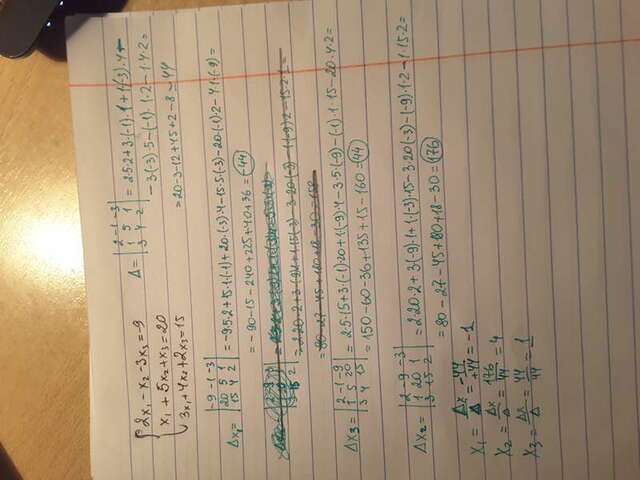 {2x₁ - x₂ - 3x₃ = -9
x₁ + 5x₂ + x₃ = 20
3x₁ + 4x₂ + 2x₃ = 15
Δ = |2 -1 -3
1 5 1
3 4 2| = 2·5·2 + 3·(-1)·1 + 1·(-3)·4 -
- 3·(-3)·5 - (-1)·1·2 - 1·4·2 =
= 20 - 3 - 12 + 45 + 2 - 8 = 44
Δx₁ = |-9 -1 -3
20 5 1
15 4 2| = -9·5·2 + 15·1·(-1) + 20·(-3)·4 - 15·5(-3) - 20·(-1)·2 - 4·1·(-9) =
= -90 - 15 - 240 + 225 + 40 + 36 = -44
2 -9 -3
1 20 1
3 15 2
= 2·20·2 + 3·(-9)·1 + 1·15(-3) - 3·20·(-3) - 1·(-9)·2 - 15·2·1 =
= 80 - 27 - 45 + 180 + 18 - 30 = 158
Δx₃ = |2 -1 -9
1 5 20
3 4 15| = 2·5·15 + 3·(-1)·20 + 1·(-9)·4 - 3·5·(-9) - (-1)·1·15 - 20·4·2 =
= 150 - 60 - 36 + 135 + 15 - 160 = 44
Δx₂ = |2 -9 -3
1 20 1
3 15 2| = 2·20·2 + 3(-9)·1 + 1·(-3)·15 - 3·20(-3) - (-9)·1·2 - 1·15·2 =
= 80 - 27 - 45 + 180 + 18 - 30 = 176
x₁ = Δx/Δ = -44/+44 = -1
x₂ = Δx/Δ = 176/44 = 4
x₃ = Δx/Δ = 44/44 = 1